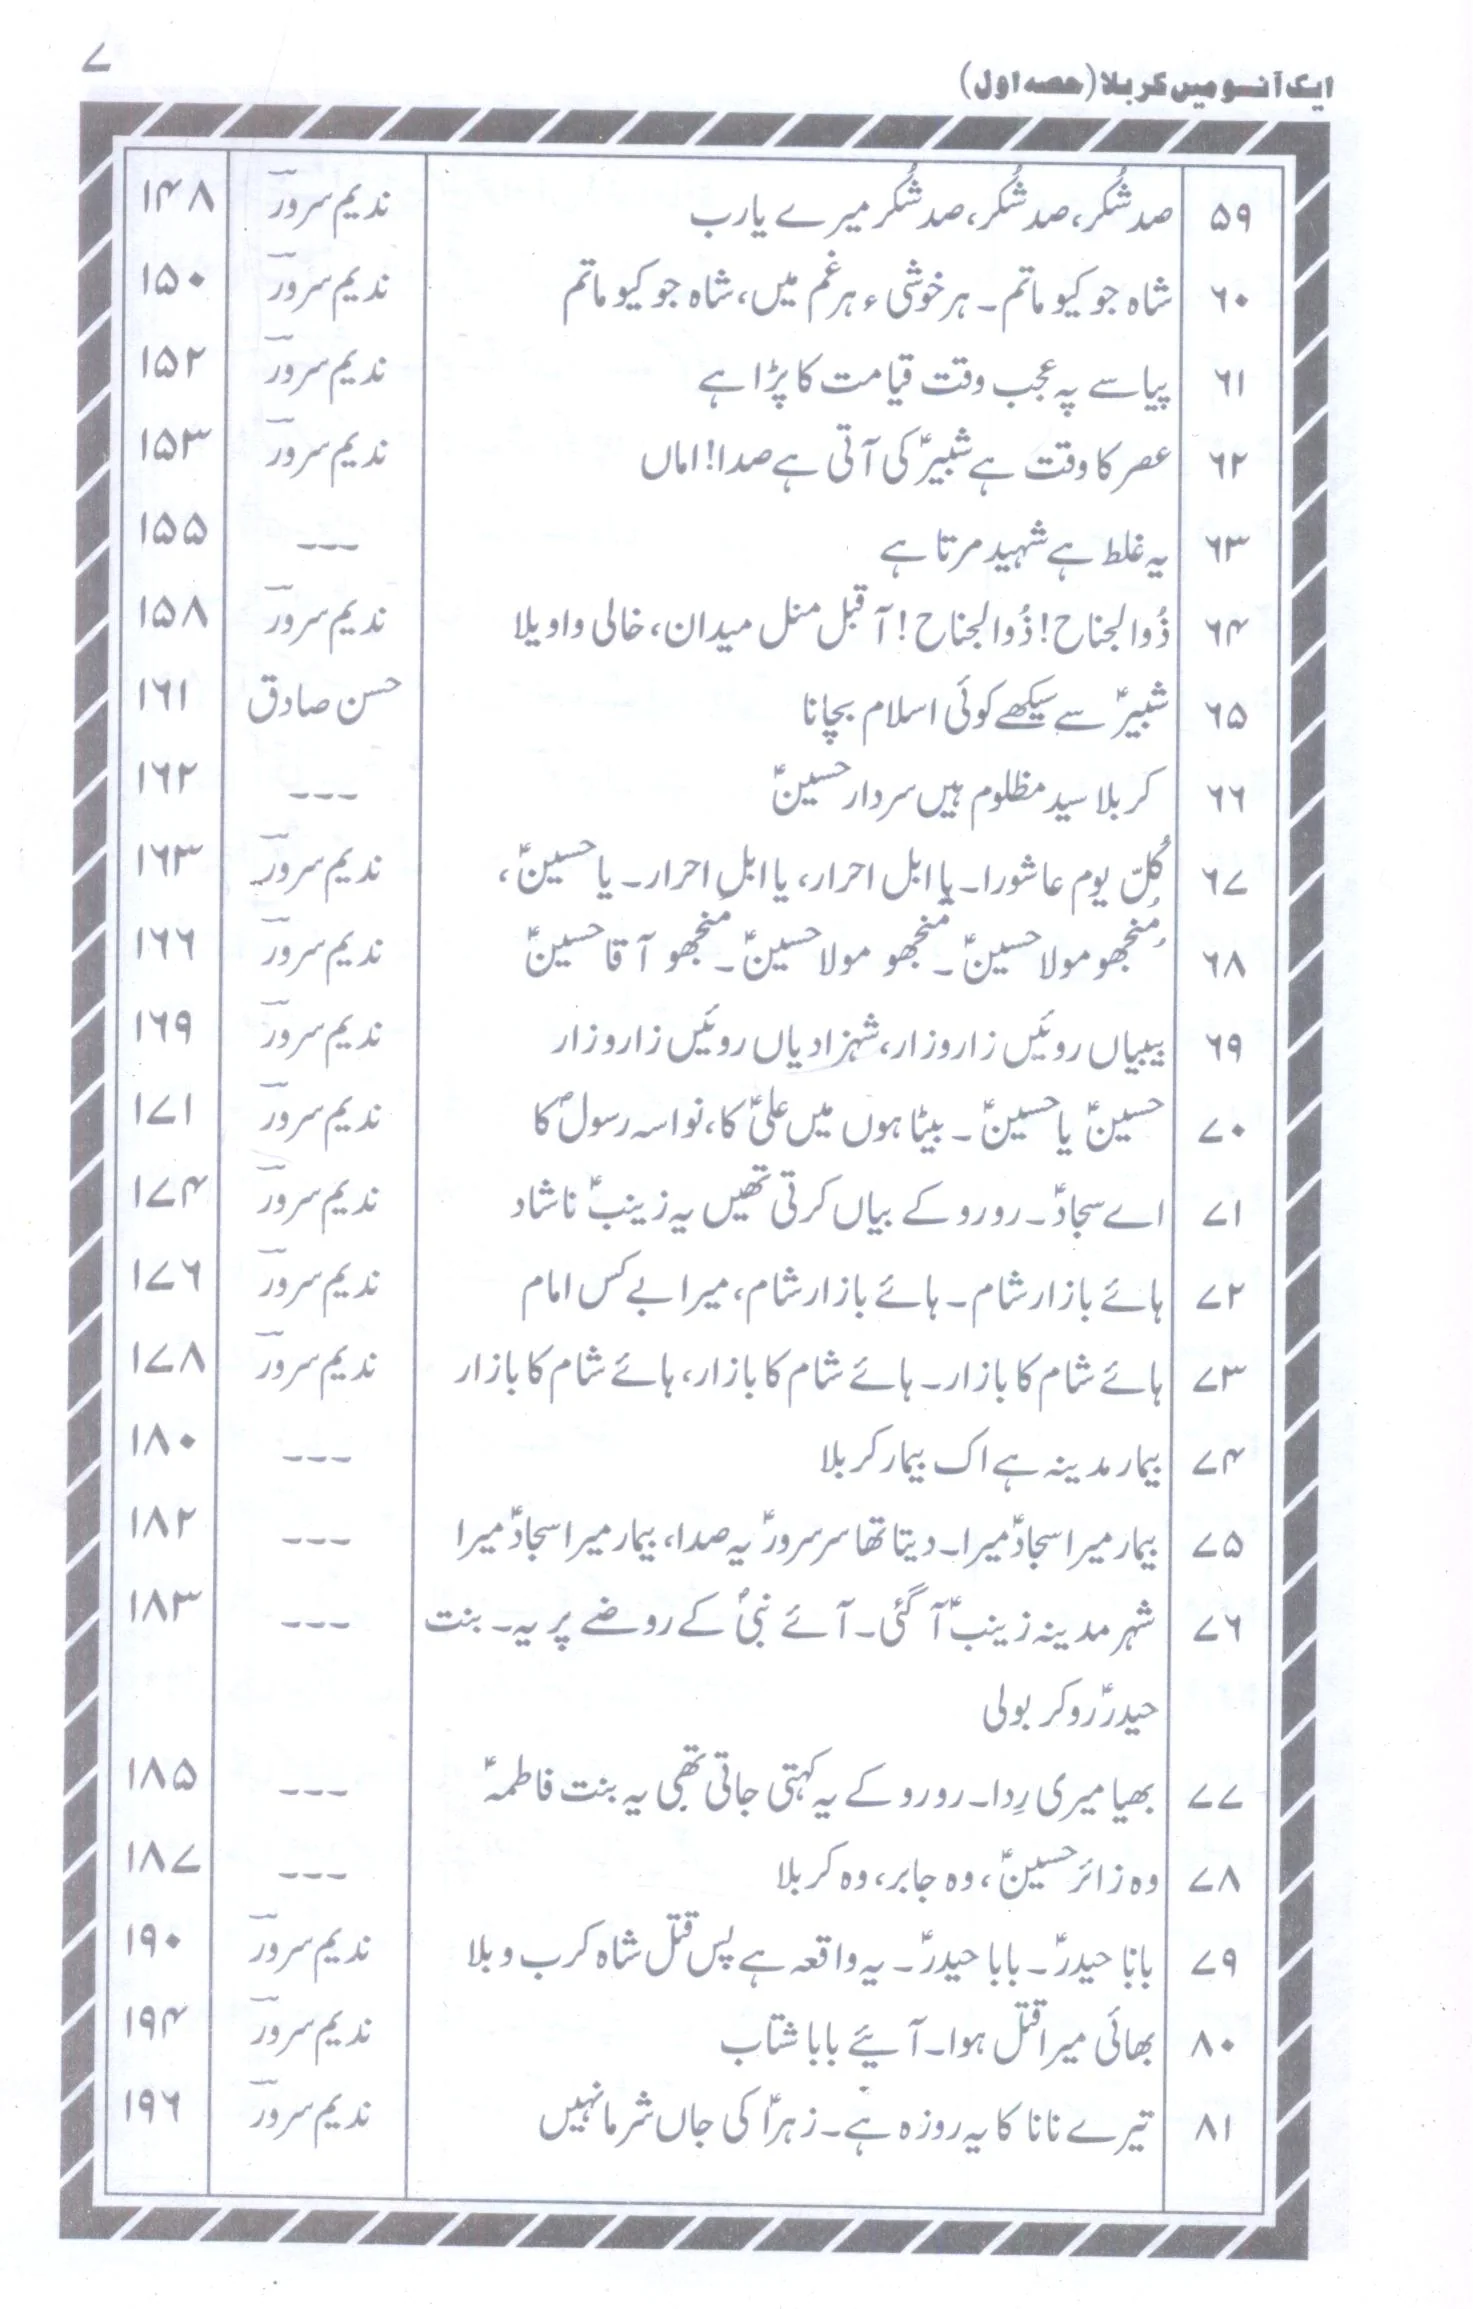 ایک آنسو میں کربلا (حصہ اول) ۷
۵۹ صد شُکر، صد شُکر، صد شُکر میرے یارب ندیم سرورؔ ۱۴۸
۶۰ شاہ جو کیو ماتم۔ ہر خوشی ءِ ہر غم میں، شاہ جو کیو ماتم ندیم سرورؔ ۱۵۰
۶۱ پیاسے پہ عجب وقت قیامت کا پڑا ہے ندیم سرورؔ ۱۵۲
۶۲ عصر کا وقت ہے شبیرؑ کی آتی ہے صدا! اماں ندیم سرورؔ ۱۵۳
۶۳ یہ غلط ہے شہید مرتا ہے --- ۱۵۵
۶۴ ذُوالجناح! ذُوالجناح! آقبل منل میدان، خالی واویلا ندیم سرورؔ ۱۵۸
۶۵ شبیرؑ سے سیکھے کوئی اسلام بچانا حسن صادق ۱۶۱
۶۶ کربلا سید مظلوم ہیں سردار حسینؑ --- ۱۶۲
۶۷ کُلّ یوم عاشورا۔ یا اہل احرار، یا اہل احرار۔ یا حسینؑ، ندیم سرورؔ ۱۶۳
۶۸ مُنجھو مولا حسینؑ۔ مُنجھو مولا حسینؑ۔ مُنجھو آقا حسینؑ ندیم سرورؔ ۱۶۶
۶۹ بیبیاں روئیں زار و زار، شہزادیاں روئیں زار و زار ندیم سرورؔ ۱۶۹
۷۰ حسینؑ یا حسینؑ۔ بیٹا ہوں میں علیؑ کا، نواسہ رسولؐ کا ندیم سرورؔ ۱۷۱
۷۱ اے سجادؑ۔ رو رو کے بیاں کرتی تھیں یہ زینبؑ ناشاد ندیم سرورؔ ۱۷۴
۷۲ ہائے بازار شام۔ ہائے بازار شام، میرا بے کس امام ندیم سرورؔ ۱۷۶
۷۳ ہائے شام کا بازار۔ ہائے شام کا بازار، ہائے شام کا بازار ندیم سرورؔ ۱۷۸
۷۴ بیمار مدینہ ہے اک بیمار کربلا --- ۱۸۰
۷۵ بیمار میرا سجادؑ میرا۔ دیتا تھا سر سرورؑ یہ صدا، بیمار میرا سجادؑ میرا --- ۱۸۲
۷۶ شہر مدینہ زینبؑ آ گئی۔ آئے نبیؐ کے روضے پر یہ۔ بنت --- ۱۸۳
حیدرؑ رو کر بولی
۷۷ بھیا میری رِدا۔ رو رو کے یہ کہتی جاتی تھی یہ بنت فاطمہؑ --- ۱۸۵
۷۸ وہ زائر حسینؑ، وہ جابر، وہ کربلا --- ۱۸۷
۷۹ بابا حیدرؑ۔ بابا حیدرؑ۔ یہ واقعہ ہے پس قتل شاہ کرب و بلا ندیم سرورؔ ۱۹۰
۸۰ بھائی میرا قتل ہوا۔ آئیے بابا شتاب ندیم سرورؔ ۱۹۴
۸۱ تیرے نانا کا یہ روزہ ہے۔ زہراؑ کی جاں شرما نہیں ندیم سرورؔ ۱۹۶